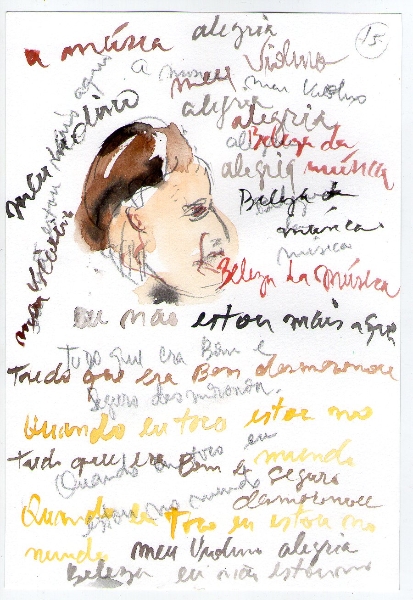 alegria
15
a música
a música
meu Violino
meu violino
alegria
alegria
Beleza da
alegria música
Beleza da
música
música
Beleza da música
meu violino
estou mais aqui
meu violino
eu não estou mais aqui
Tudo que era Bom e
Tudo que era Bom desmoronou
Seguro desmoronou.
Quando eu toco estou no
Tudo que era Bom e Seguro
mundo
Quando eu toco eu
estou no mundo
desmoronou
Quando eu Toco eu estou no
mundo meu Violino alegria
Beleza eu não estou no